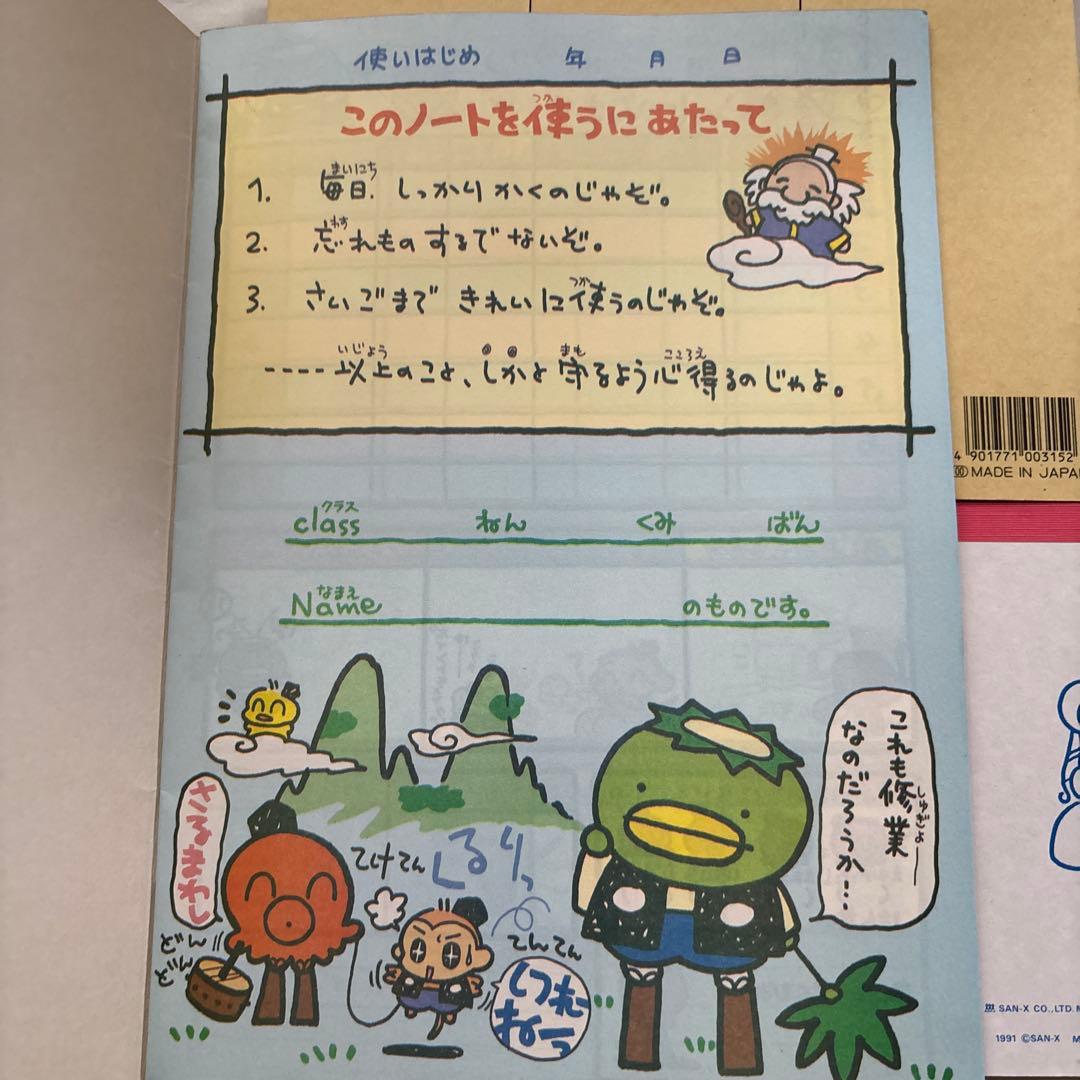 使いはじめ 年 月 日
このノートを使うにあたって
つか
1. 毎日、しっかりかくのじゃぞ。
まいにち
2. 忘れものするでないぞ。
わす
3. さいごまで きれいに使うのじゃぞ。
つか
----以上のこと、しかと守るよう心得るのじゃよ。
いじょう
まも
こころえ
class ねん くみ ばん
クラス
Name のものです。
なまえ
これも修業
なのだろうか…
しゅぎょー
さるまわし
てけてん
くるりっ
てんてん
どん
どん
4 901771 003152
MADE IN JAPA
SAN-X CO.,LTD.M
1991 ©SAN-X M